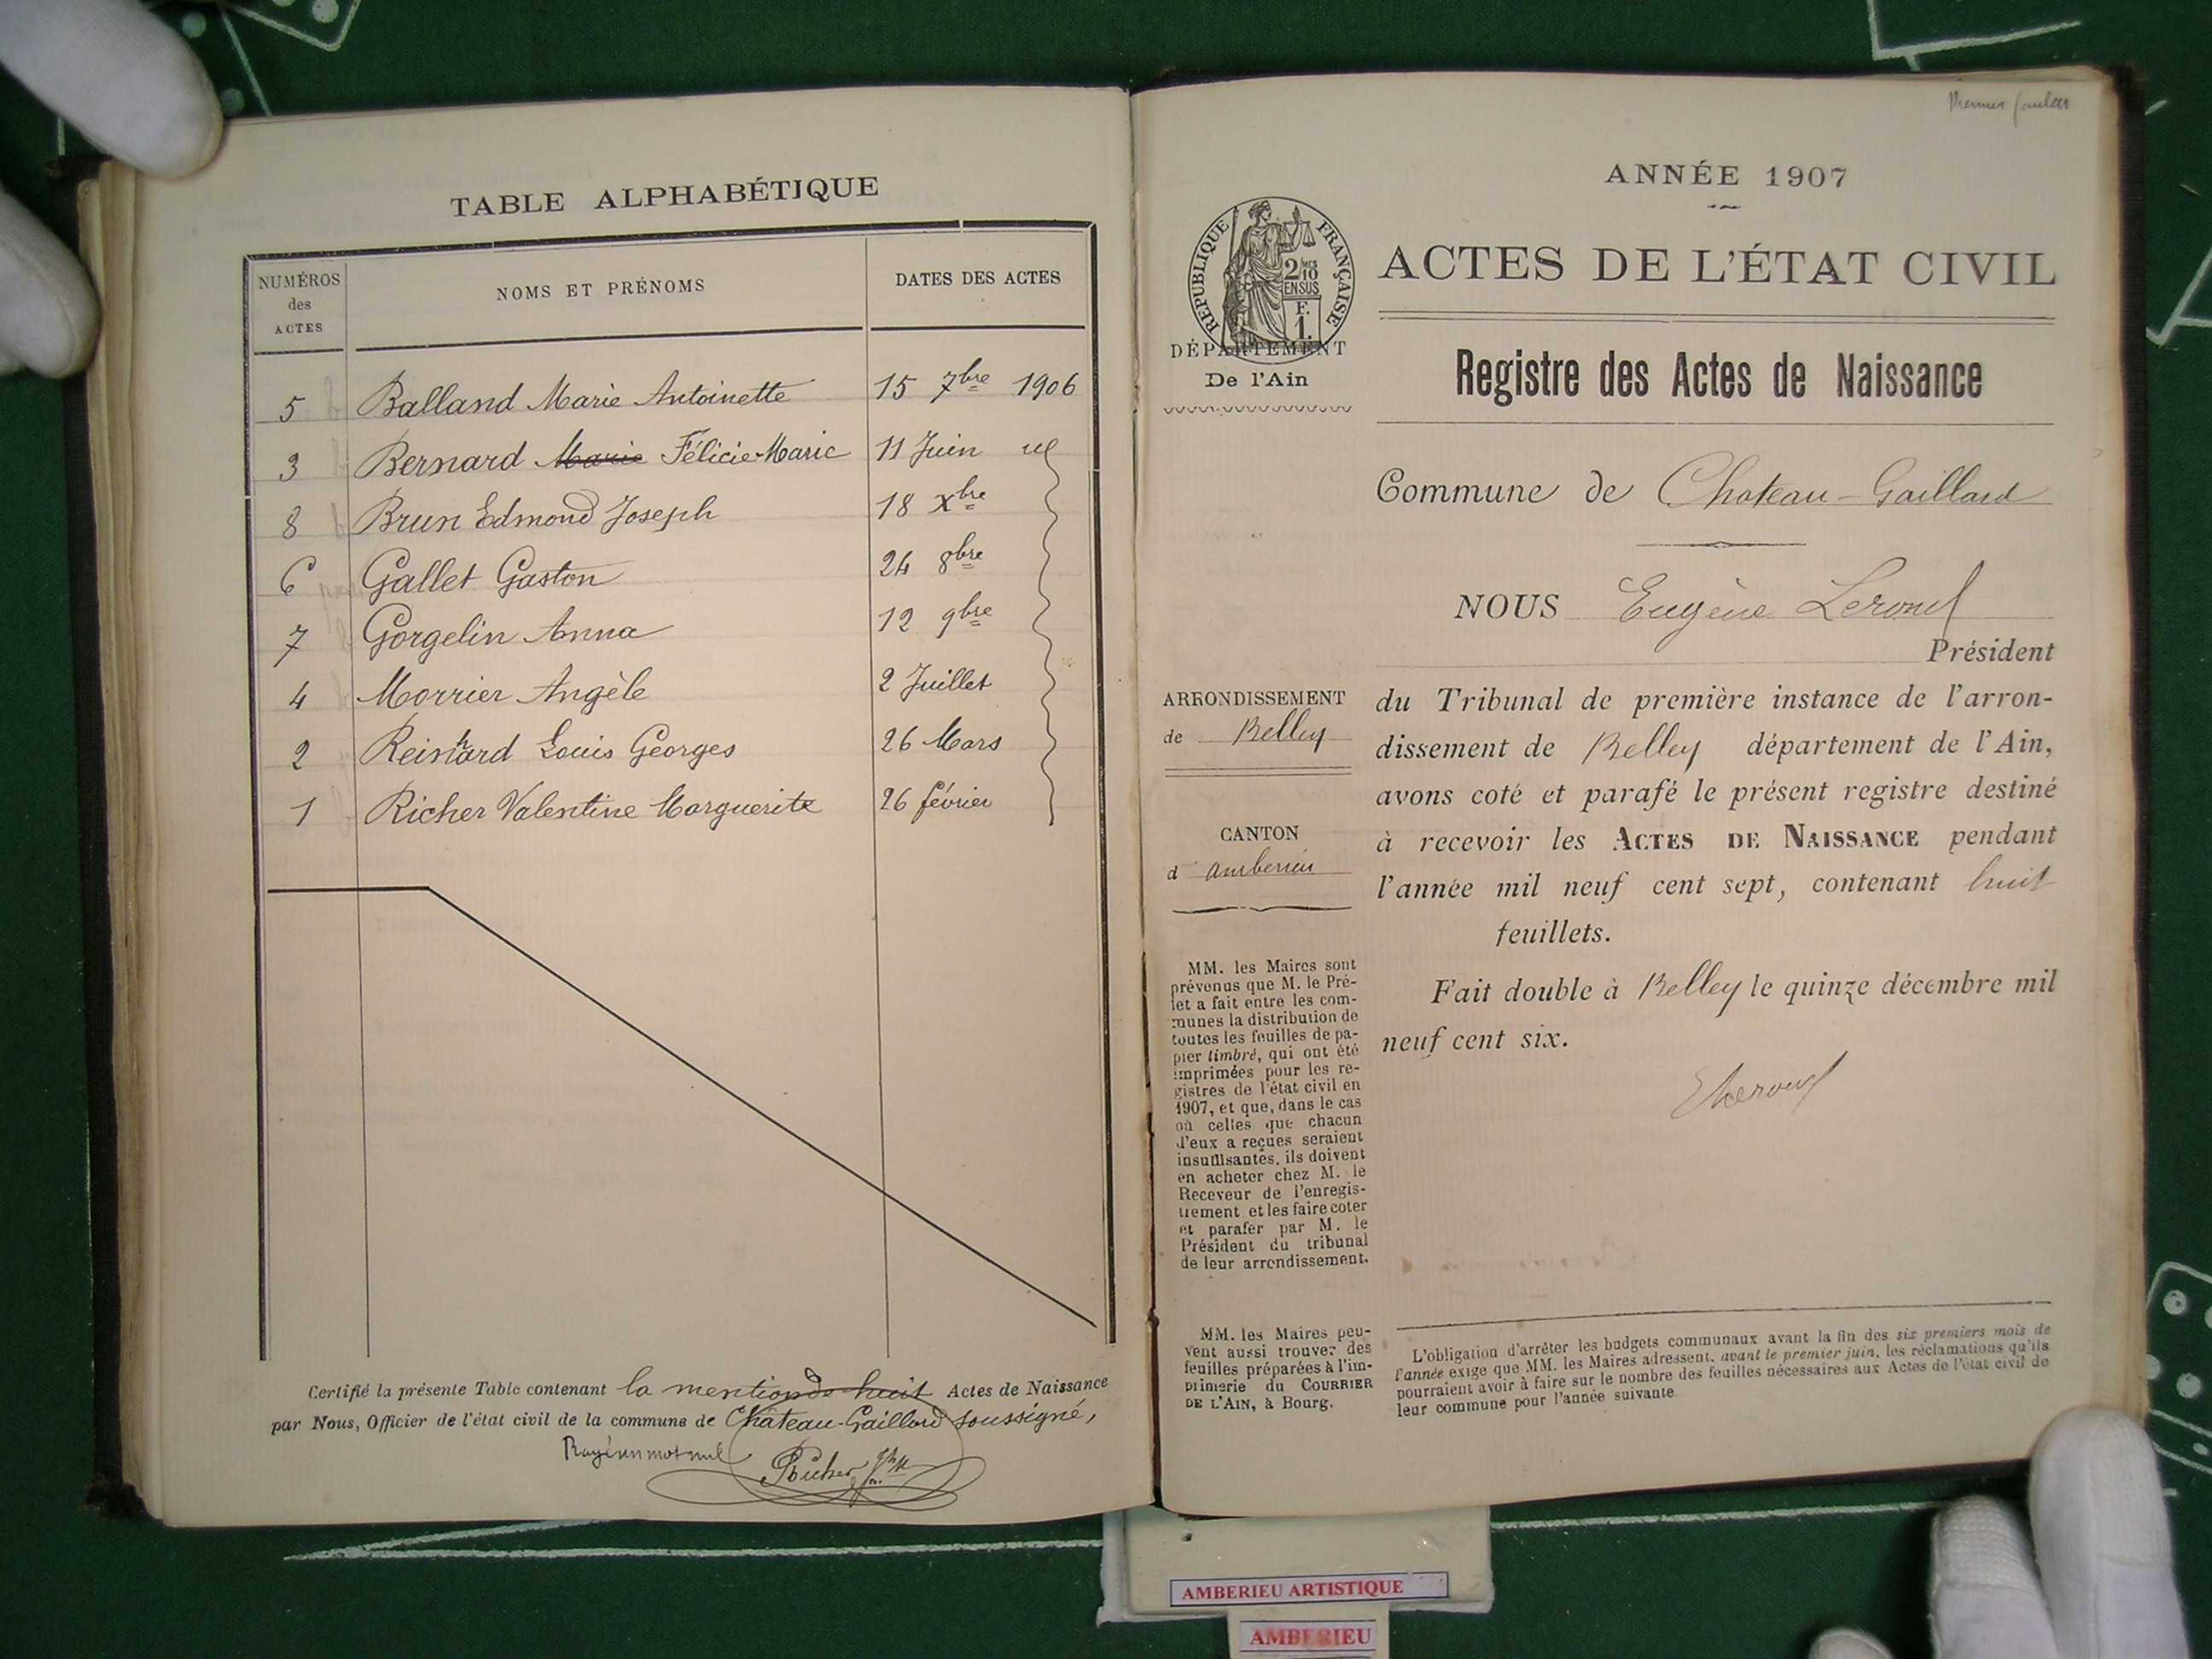 TABLE ALPHABÉTIQUE
NUMÉROS
des
ACTES
NOMS ET PRÉNOMS
DATES DES ACTES
5 Balland Marie Antoinette 15 7bre 1906
3 Bernard Marie Félicie Marie 11 Juin
8 Brun Edmond Joseph 18 xbre
6 Gallet Gaston 24 8bre
7 Gorgelin Anna 12 9bre
4 Morrier Angèle 2 Juillet
2 Reinhard Louis Georges 26 Mars
1 Richer Valentine Marguerite 26 février
Certifié la présente Table contenant la mention de huit Actes de Naissance
par Nous, Officier de l'état civil de la commune de Château-Gaillard soussigné,
Rayé un mot nul
Richer
Premier
ANNÉE 1907
ACTES DE L'ÉTAT CIVIL
Registre des Actes de Naissance
RÉPUBLIQUE FRANÇAISE
2/10 MES
EN SUS
F.
1.
DÉPARTEMENT
De l'Ain
Commune de Chateau-Gaillard
NOUS Eugène
Président
du Tribunal de première instance de l'arron-
dissement de Belley département de l'Ain,
avons coté et parafé le présent registre destiné
à recevoir les ACTES DE NAISSANCE pendant
l'année mil neuf cent sept, contenant huit
feuillets.
Fait double à Belley le quinze décembre mil
neuf cent six.
ARRONDISSEMENT
de Belley
CANTON
d'ambérieu
MM. les Maires sont
prévenus que M. le Pré-
fet a fait entre les com-
munes la distribution de
toutes les feuilles de pa-
pier timbré, qui ont été
imprimées pour les re-
gistres de l'état civil en
1907, et que, dans le cas
où celles que chacun
d'eux a reçues seraient
insuffisantes, ils doivent
en acheter chez M. le
Receveur de l'enregis-
trement et les faire coter
et parafer par M. le
Président du tribunal
de leur arrondissement.
MM. les Maires peu-
vent aussi trouver des
feuilles préparées à l'im-
primerie du COURRIER
DE L'AIN, à Bourg.
L'obligation d'arrêter les budgets communaux avant la fin des six premiers mois de
l'année exige que MM. les Maires adressent, avant le premier juin, les réclamations qu'ils
pourraient avoir à faire sur le nombre des feuilles nécessaires aux Actes de l'état civil de
leur commune pour l'année suivante
AMBERIEU ARTISTIQUE
AMBERIEU